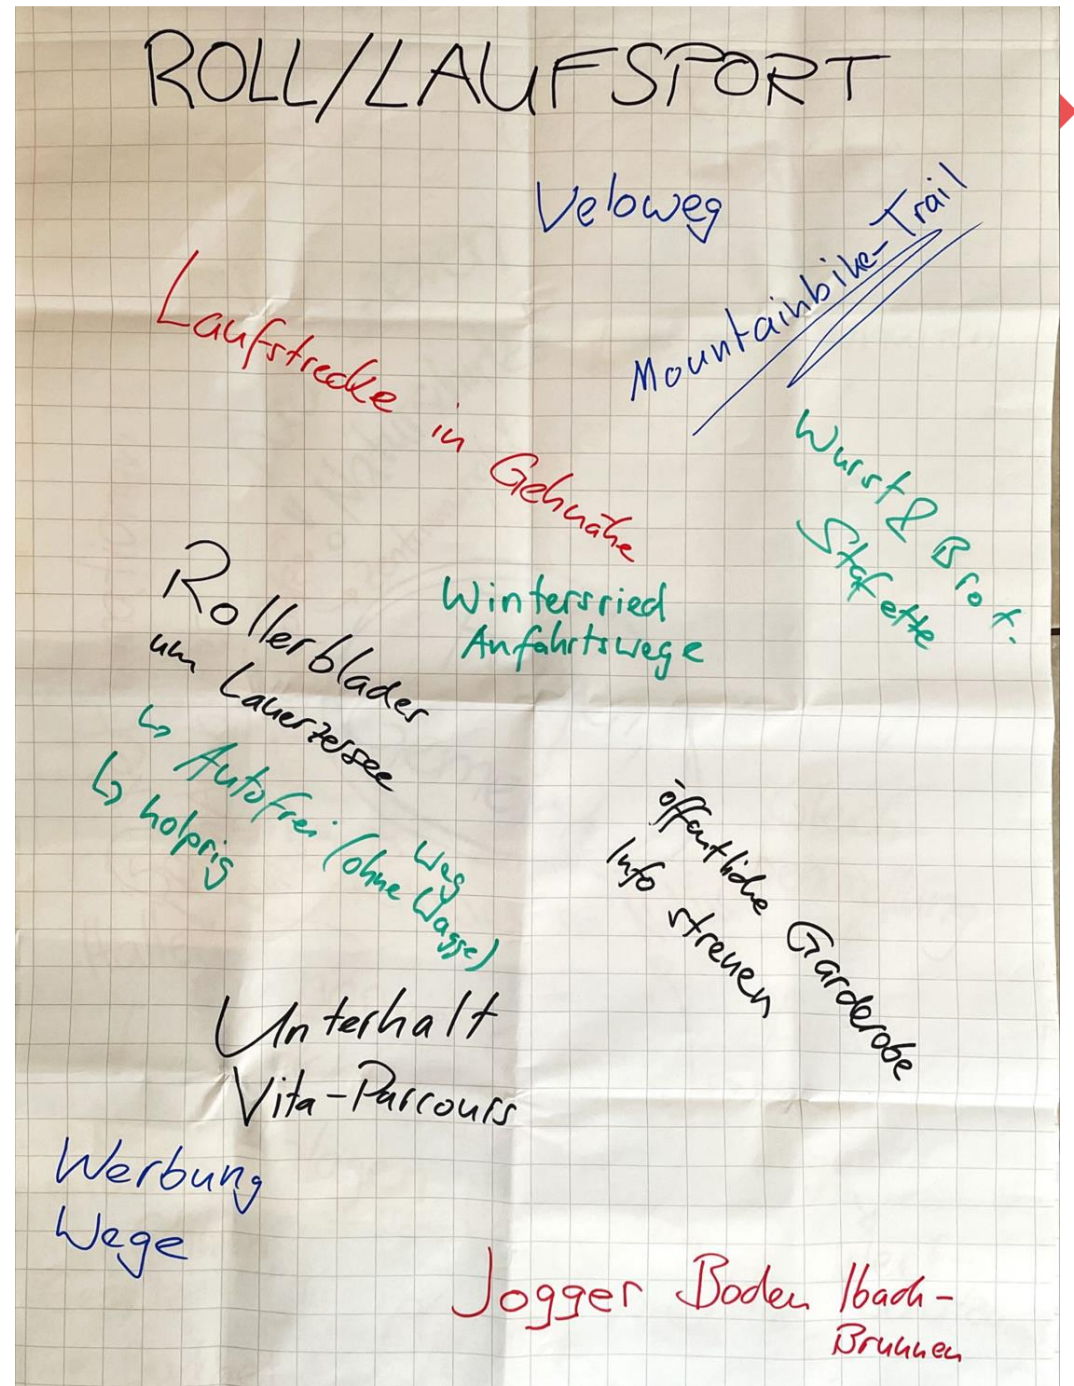 ROLL/LAUFSPORT
Veloweg
Mountainbike-Trail
Laufstrecke in Gehnähe
Wurst & Brot.
Stafette
Wintersried
Anfahrtswege
Rollerblader
um Lauerzersee
↳ Autofrei Weg
(ohne Wasser)
↳ holprig
öffentliche Garderobe
Info streuen
Unterhalt
Vita-Parcours
Werbung
Wege
Jogger Boden Ibach-
Brunnen